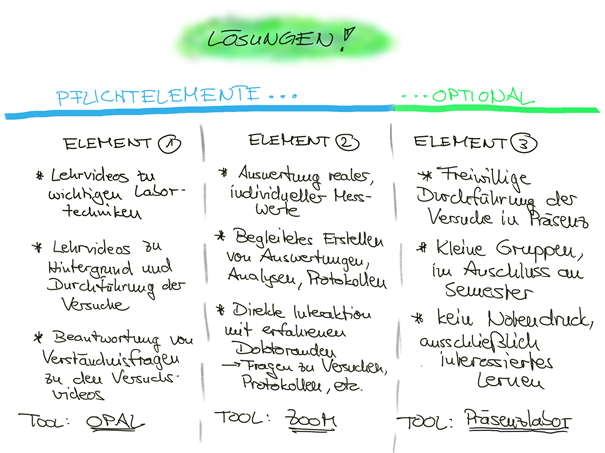 LÖSUNGEN!
PFLICHTELEMENTE...
...OPTIONAL
ELEMENT 1
* Lehrvideos zu
wichtigen Labor-
techniken
* Lehrvideos zu
Hintergrund und
Durchführung der
Versuche
* Beantwortung von
Verständnisfragen
zu den Versuchs-
videos
TOOL: OPAL
ELEMENT 2
* Auswertung reales,
individueller Mess-
werte
* Begleitetes Erstellen
von Auswertungen,
Analysen, Protokollen
* Direkte Interaktion
mit erfahrenen
Doktoranden
→ Fragen zu Versuchen,
Protokollen, etc.
TOOL: ZOOM
ELEMENT 3
* Freiwillige
Durchführung der
Versuche in Präsenz
* Kleine Gruppen,
im Anschluss an
Semester
* kein Notendruck,
ausschließlich
interessiertes
Lernen
TOOL: Präsenzlabor